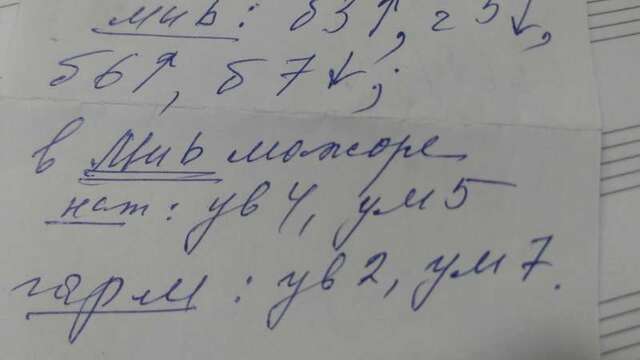 миь: б3↑, ч5↓,
б6↑, б7↓;
в Миь мажоре
нат: ув4, ум5
гарм: ув2, ум7.